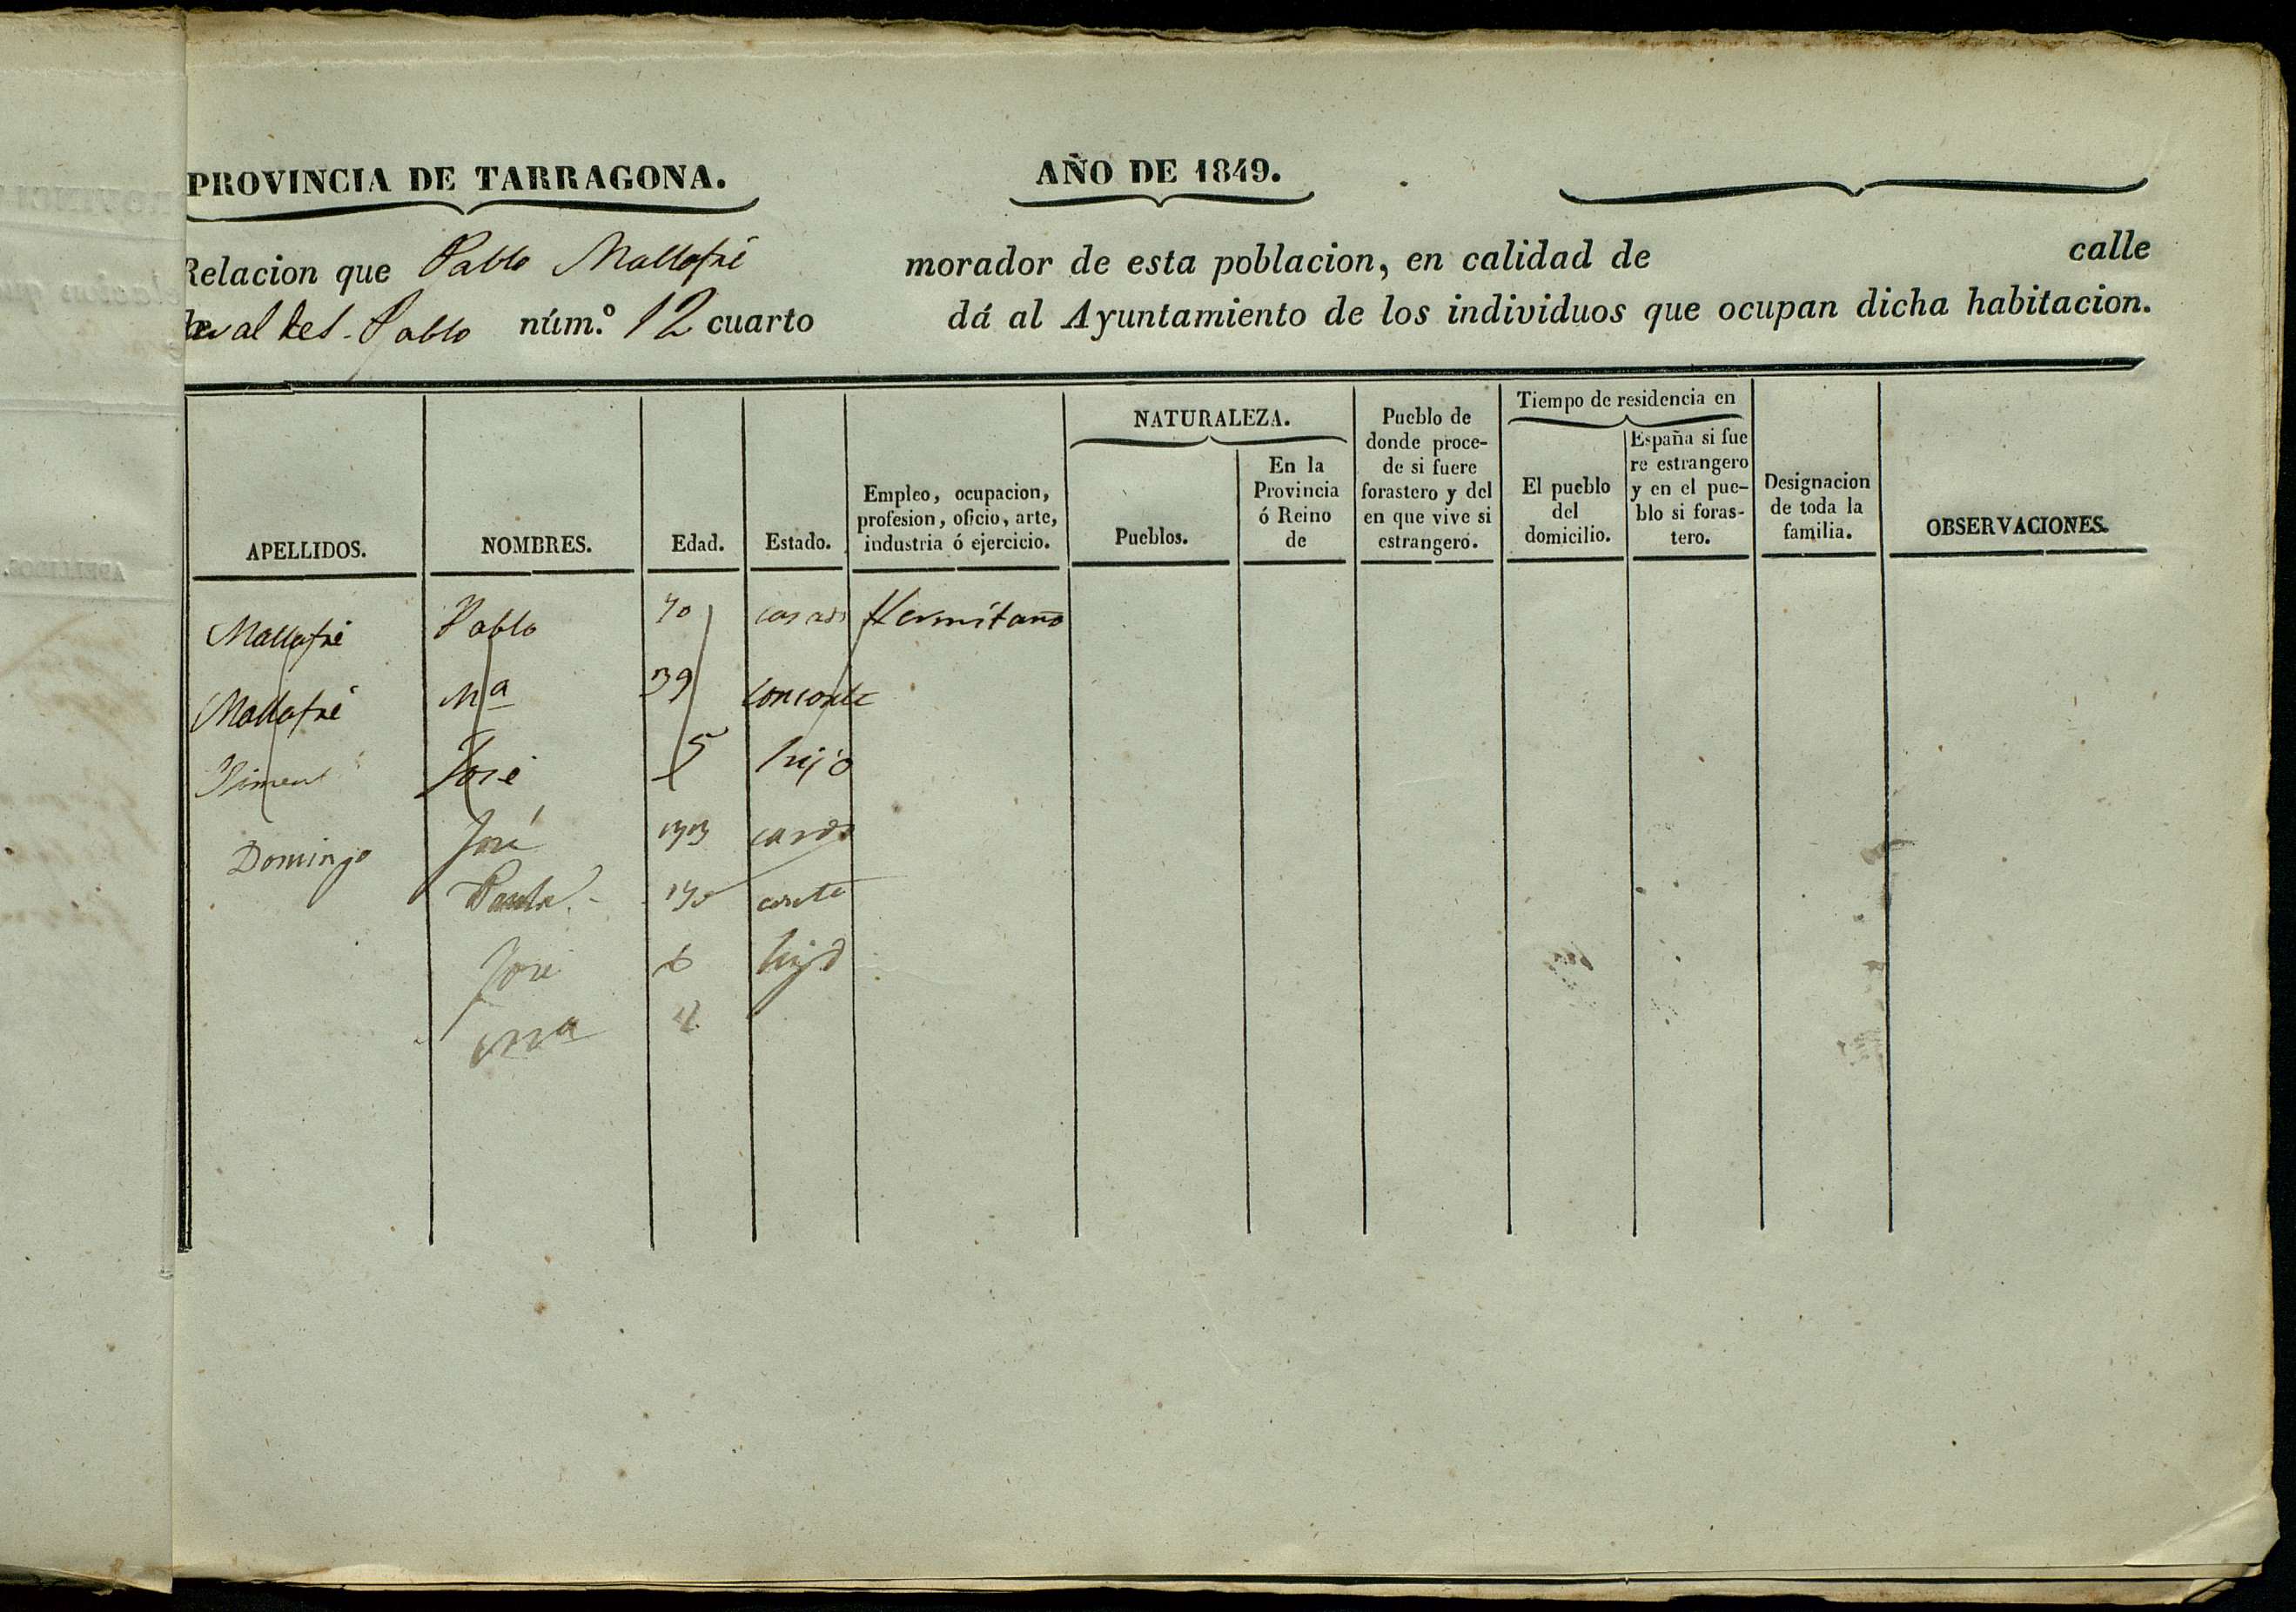 PROVINCIA DE TARRAGONA.
AÑO DE 1849.
Relacion que Pablo Mallofré morador de esta poblacion, en calidad de calle
Pablo núm.º 12 cuarto dá al Ayuntamiento de los individuos que ocupan dicha habitacion.
APELLIDOS.
NOMBRES.
Edad.
Estado.
Empleo, ocupacion,
profesion, oficio, arte,
industria ó ejercicio.
NATURALEZA.
Pueblos.
En la
Provincia
ó Reino
de
Pueblo de
donde proce-
de si fuere
forastero y del
en que vive si
estrangero.
Tiempo de residencia en
El pueblo
del
domicilio.
España si fue
re estrangero
y en el pue-
blo si foras-
tero.
Designacion
de toda la
familia.
OBSERVACIONES.
Mallofré Pablo casado Hermitaño
Mallofré Mª 39
José 5 hijo
Domingo José
José 6 hijo
Mª